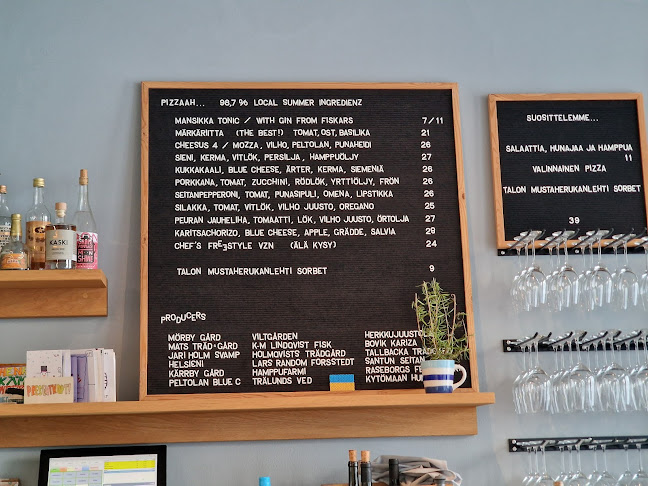 PIZZAAH... 98,7 % LOCAL SUMMER INGREDIENZ
MANSIKKA TONIC / WITH GIN FROM FISKARS 7/11
MÄRKÄRIITTA (THE BEST!) TOMAT, OST, BASILIKA 21
CHEESUS 4 / MOZZA, VILHO, PELTOLAN, PUNAHEIDI 26
SIENI, KERMA, VITLÖK, PERSILJA, HAMPPUÖLJY 27
KUKKAKAALI, BLUE CHEESE, ÄRTER, KERMA, SIEMENIÄ 26
PORKKANA, TOMAT, ZUCCHINI, RÖDLÖK, YRTTIÖLJY, FRÖN 26
SEITANPEPPERONI, TOMAT, PUNASIPULI, OMENA, LIPSTIKKA 26
SILAKKA, TOMAT, VITLÖK, VILHO JUUSTO, OREGANO 25
PEURAN JAUHELIHA, TOMAATTI, LÖK, VILHO JUUSTO, ÖRTOLJA 27
KARITSACHORIZO, BLUE CHEESE, APPLE, GRÄDDE, SALVIA 29
CHEF'S FREESTYLE VZN (ÄLÄ KYSY) 24
TALON MUSTAHERUKANLEHTI SORBET 9
PRODUCERS
MÖRBY GÅRD VILTGÅRDEN HERKKUJUUSTOLA
MATS TRÄD.GÅRD K-M LINDQVIST FISK BOVIK KARIZA
JARI HOLM SVAMP HOLMQVISTS TRÄDGÅRD TALLBACKA TRÄD
HELSIENI LARS RANDOM FORSSTEDT SANTUN SEITAN
KÄRRBY GÅRD HAMPPUFARMI RASEBORGS
PELTOLAN BLUE C TRÄLUNDS VED KYTÖMAAN
SUOSITTELEMME...
SALAATTIA, HUNAJAA JA HAMPPUA
11
VALINNAINEN PIZZA
TALON MUSTAHERUKANLEHTI SORBET
39
KASKI